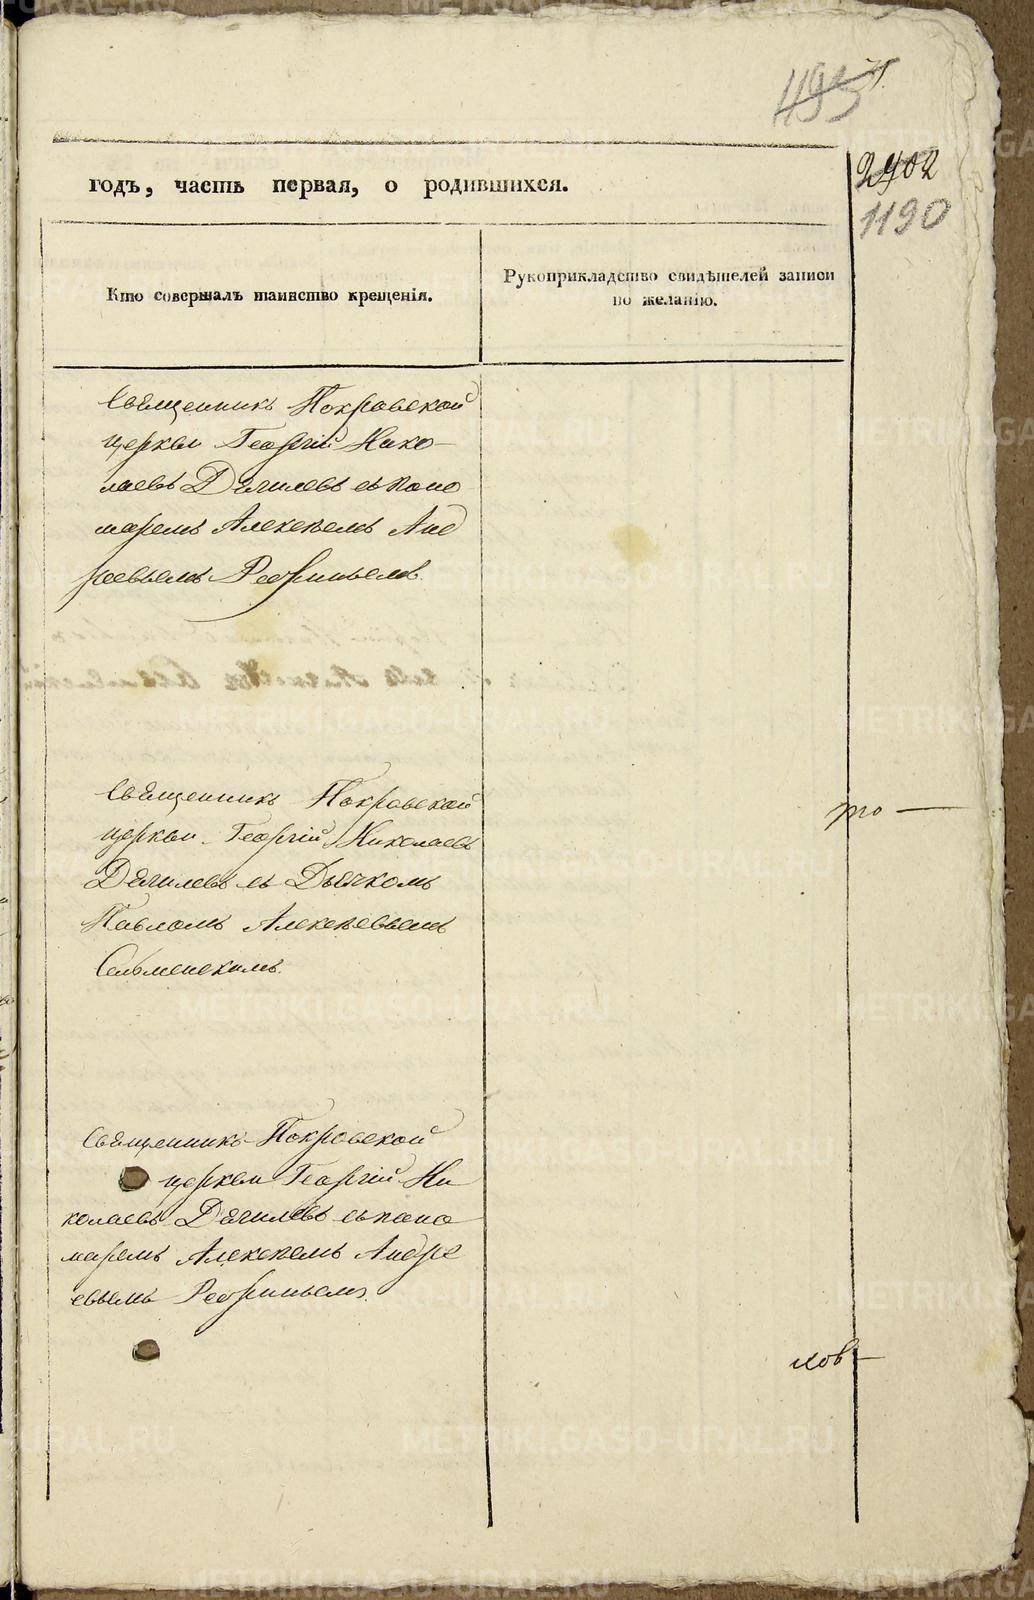 1193
71.
2402
1190
годъ, часть первая, о родившихся.
Кто совершалъ таинство крещенія.
Рукоприкладство свидѣтелей записи
по желанію.
Священникъ Покровской
церкви Георгій Нико-
лаевъ Дягилевъ съ поно
маремъ Алексѣемъ Анд
реевымъ
то —
Священникъ Покровской
церкви Георгій Николаевъ
Дягилевъ съ Дьячкомъ
Павломъ Алексѣевымъ
Сельменскимъ.
Священникъ Покровской
церкви Георгій Ни
колаевъ Дягилевъ съ поно
маремъ Алексѣемъ Андре
евымъ
ков —
METRIKI.GASO-URAL.RU